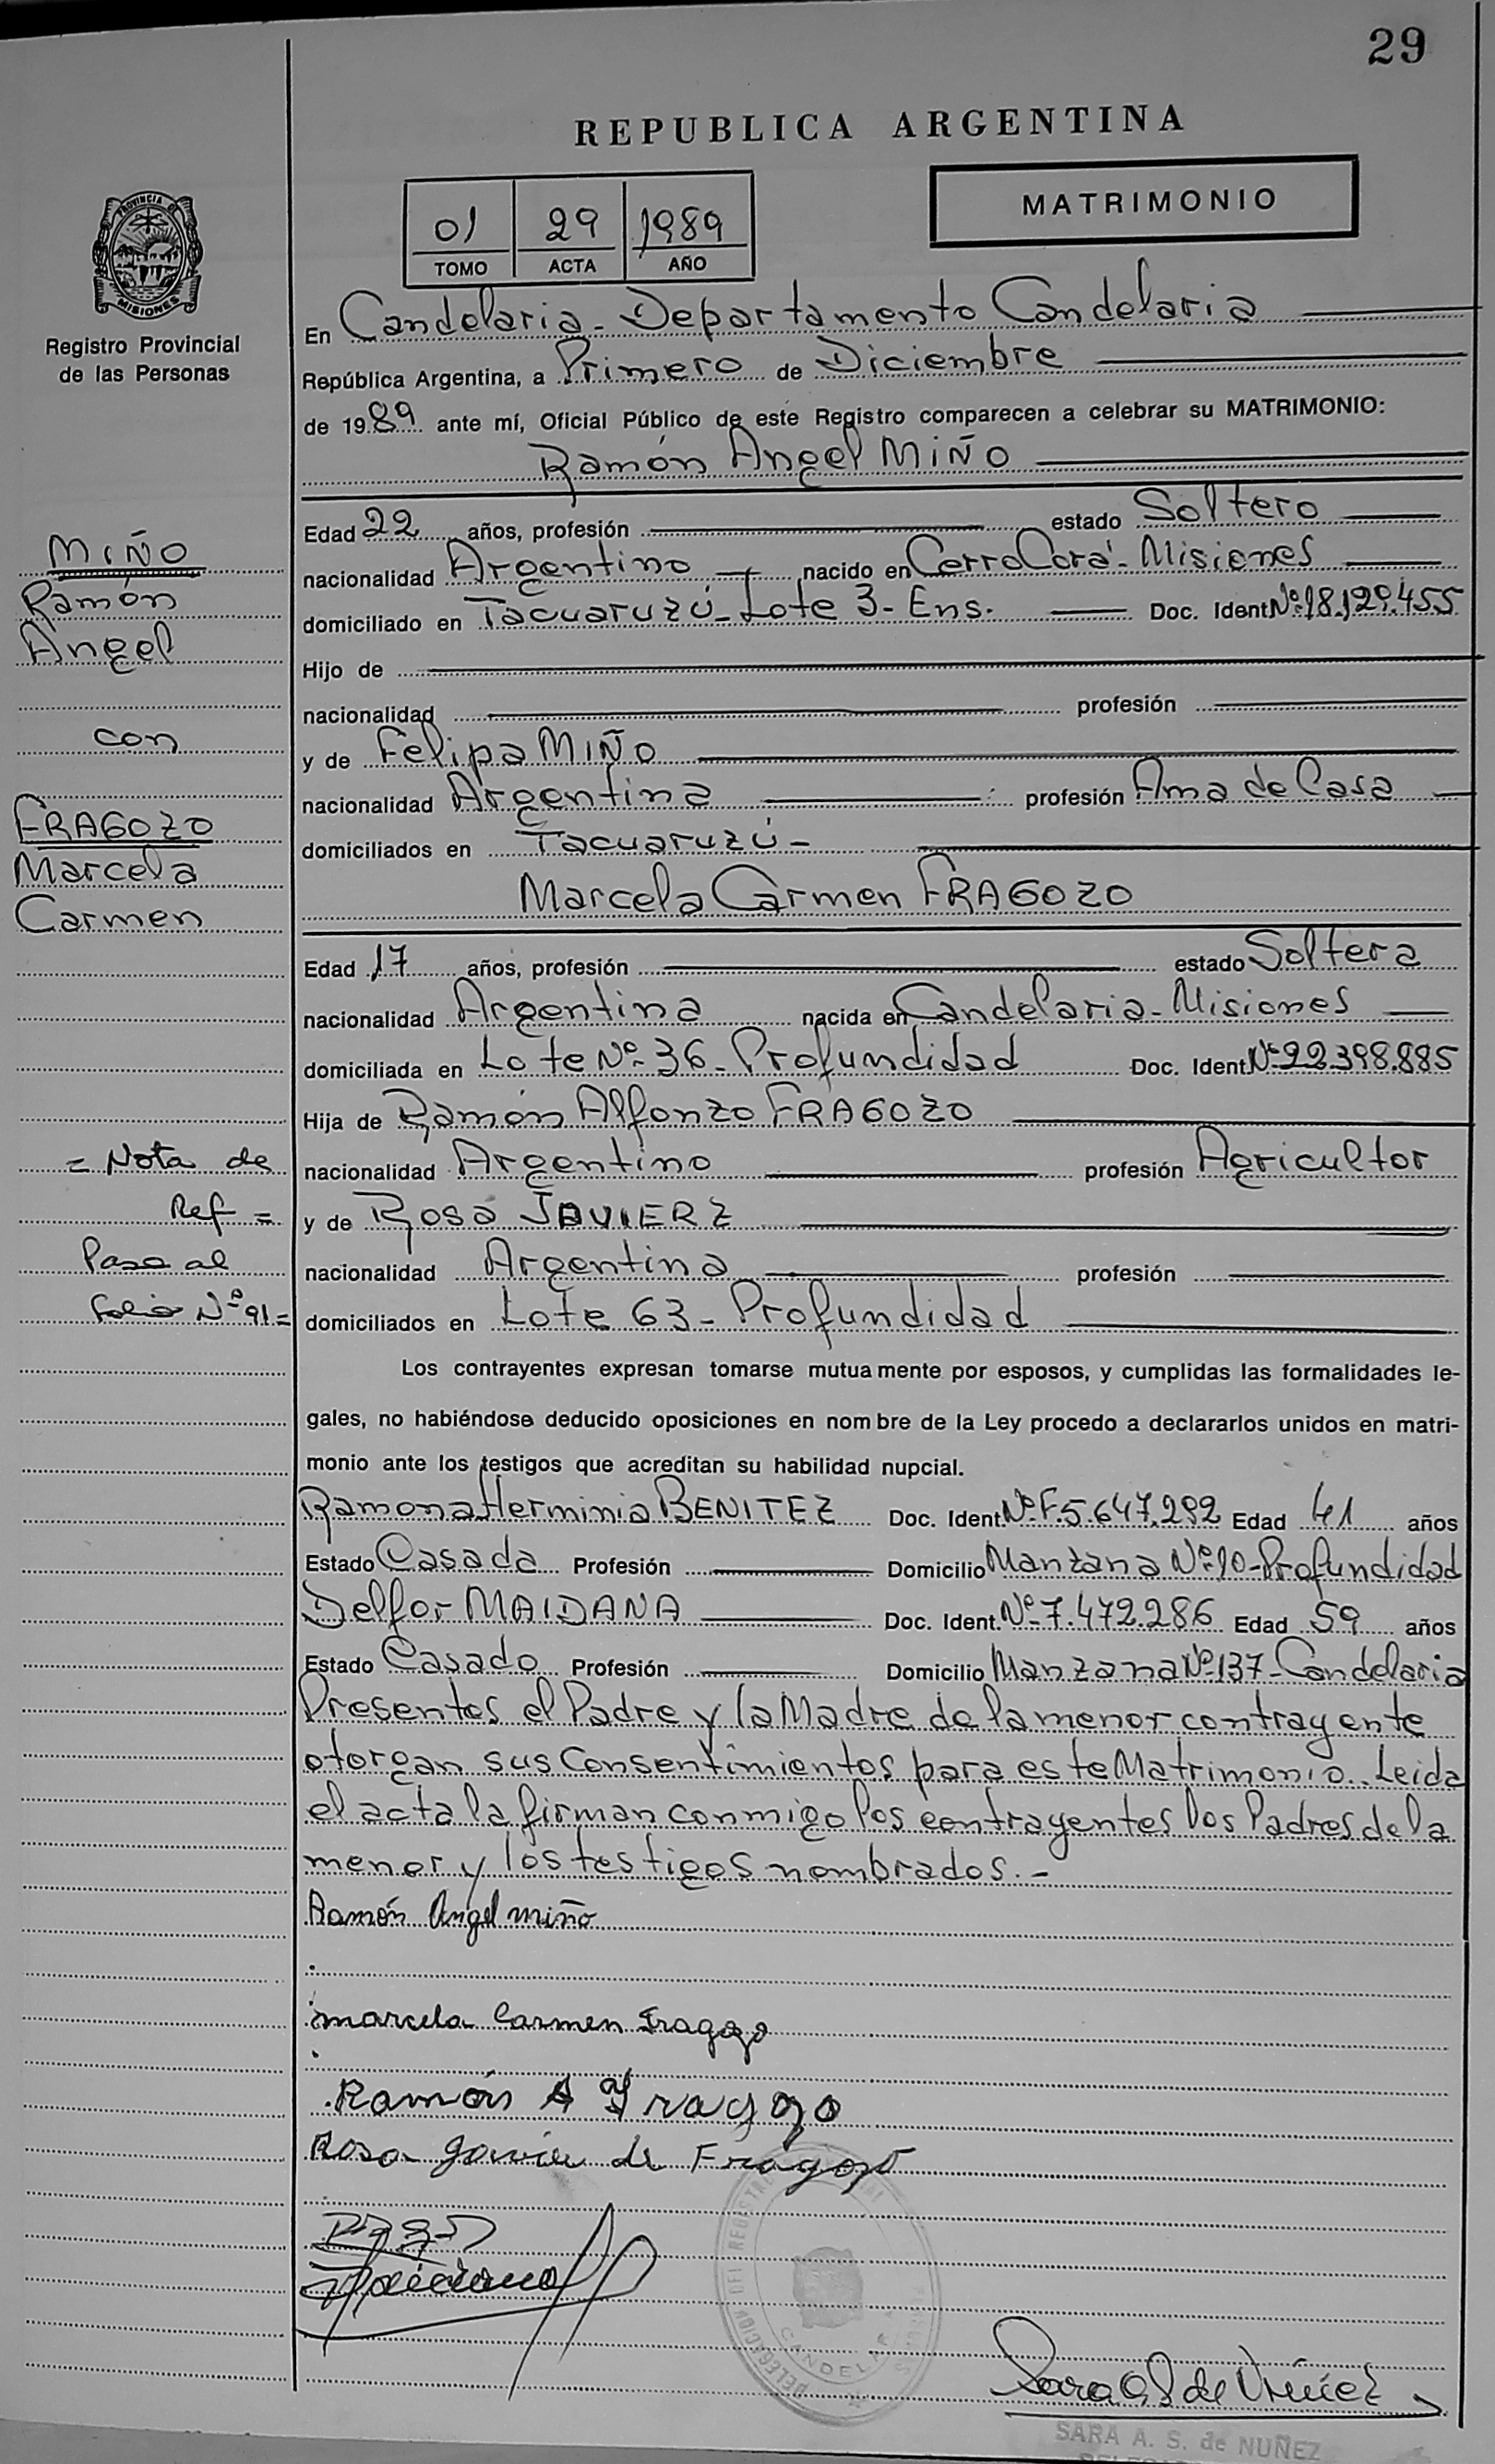 29
REPUBLICA ARGENTINA
PROVINCIA DE
MISIONES
Registro Provincial
de las Personas
01 29 1989
TOMO ACTA AÑO
MATRIMONIO
En Candelaria - Departamento Candelaria
República Argentina, a Primero de Diciembre
de 1989 ante mí, Oficial Público de este Registro comparecen a celebrar su MATRIMONIO:
Ramón Angel MIÑO
Edad 22 años, profesión estado Soltero
nacionalidad Argentino nacido en Cerro Corá - Misiones
domiciliado en Tacuaruzú - Lote 3 - Ens. Doc. Ident Nº 18.129.455
Hijo de
nacionalidad profesión
y de Felipa MIÑO
nacionalidad Argentina profesión Ama de Casa
domiciliados en Tacuaruzú -
Marcela Carmen FRAGOZO
Edad 17 años, profesión estado Soltera
nacionalidad Argentina nacida en Candelaria - Misiones
domiciliada en Lote Nº 36 - Profundidad Doc. Ident Nº 22.398.885
Hija de Ramón Alfonzo FRAGOZO
nacionalidad Argentino profesión Agricultor
y de Rosa JAVIERZ
nacionalidad Argentina profesión
domiciliados en Lote 63 - Profundidad
MIÑO
Ramón
Angel
con
FRAGOZO
Marcela
Carmen
= Nota de
Ref =
Pasa al
folio Nº 91 =
Los contrayentes expresan tomarse mutuamente por esposos, y cumplidas las formalidades le-
gales, no habiéndose deducido oposiciones en nombre de la Ley procedo a declararlos unidos en matri-
monio ante los testigos que acreditan su habilidad nupcial.
Ramona Herminia BENITEZ Doc. Ident. Nº F.5.647.292 Edad 41 años
Estado Casada Profesión Domicilio Manzana Nº 10 - Profundidad
Delfor MAIDANA Doc. Ident. Nº 7.472.286 Edad 59 años
Estado Casado Profesión Domicilio Manzana Nº 137 - Candelaria
Presentes el Padre y la Madre de la menor contrayente
otorgan sus Consentimientos para este Matrimonio. Leida
el acta la firman conmigo los contrayentes los Padres de la
menor y los testigos nombrados. -
Ramón Angel miño
marcela Carmen Fragozo
Ramón A Fragozo
Rosa de Fragozo
Sara A S de Nuñez
SARA A. S. de NUÑEZ